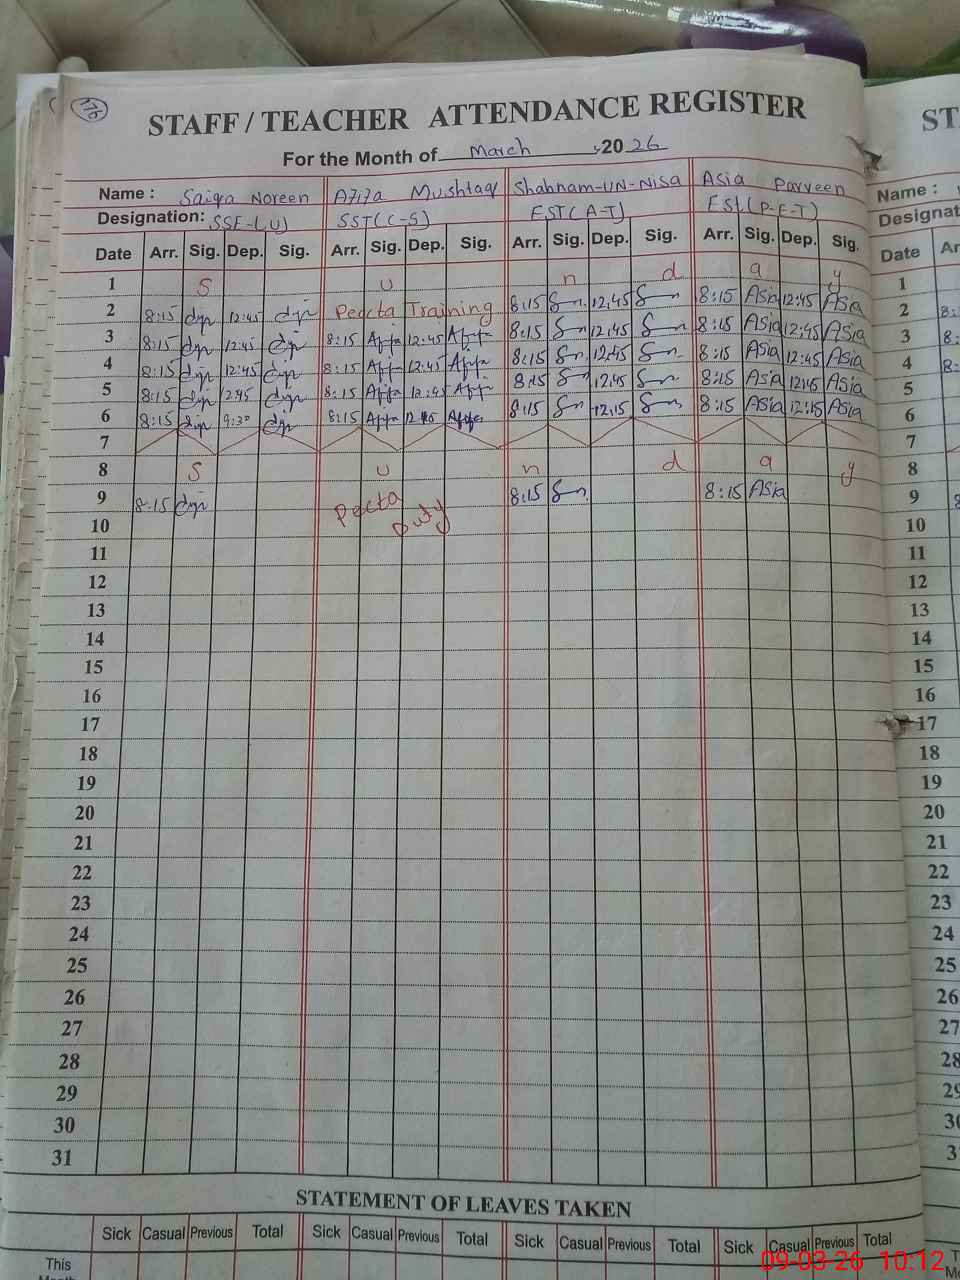 STAFF / TEACHER ATTENDANCE REGISTER
For the Month of March 2026
Name : Saiqa Noreen Aziza Mushtaq Shahnam-UN-Nisa Asia Parveen
Designation: SSE-(U) SST(C-S) EST(A-T) ESt(P-E-T)
Date Arr. Sig. Dep. Sig. Arr. Sig. Dep. Sig. Arr. Sig. Dep. Sig. Arr. Sig. Dep. Sig.
1 S u n d a y
2 8:15 12:45 Peecta Training 8:15 12,45 8:15 Asia 12:45 Asia
3 8:15 12:45 8:15 12:45 8:15 12,45 8:15 Asia 12:45 Asia
4 8:15 12:45 8:15 12:45 8:15 12,45 8:15 Asia 12:45 Asia
5 8:15 12:45 8:15 12:45 8:15 12,45 8:15 Asia 12:45 Asia
6 8:15 9:30 8:15 8:15 12,15 8:15 Asia 12:15 Asia
7
8 S u n d a y
9 8:15 Pecta Duty 8:15 8:15 Asia
10
11
12
13
14
15
16
17
18
19
20
21
22
23
24
25
26
27
28
29
30
31
STATEMENT OF LEAVES TAKEN
Sick Casual Previous Total Sick Casual Previous Total Sick Casual Previous Total Sick Casual Previous Total
This
Month
ST
Name :
Designat
Date Ar
1
2 8:
3 8:
4 8:
5
6
7
8
9
10
11
12
13
14
15
16
17
18
19
20
21
22
23
24
25
26
27
28
29
30
09-03-26 10:12